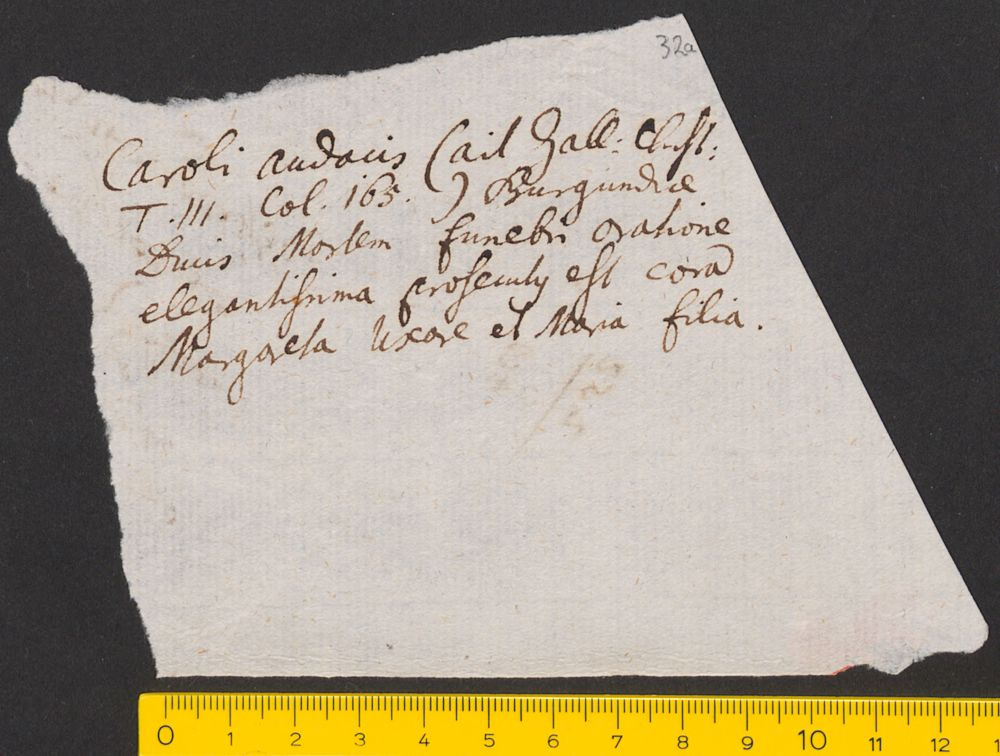 32a
Caroli audacis (ait Gall: Christ:
T. III. Col. 165.) Burgundiæ
Ducis Mortem funebri oratione
elegantissima prosecutus est corã
Margareta Uxore et Maria filia.
0 1 2 3 4 5 6 7 8 9 10 11 12